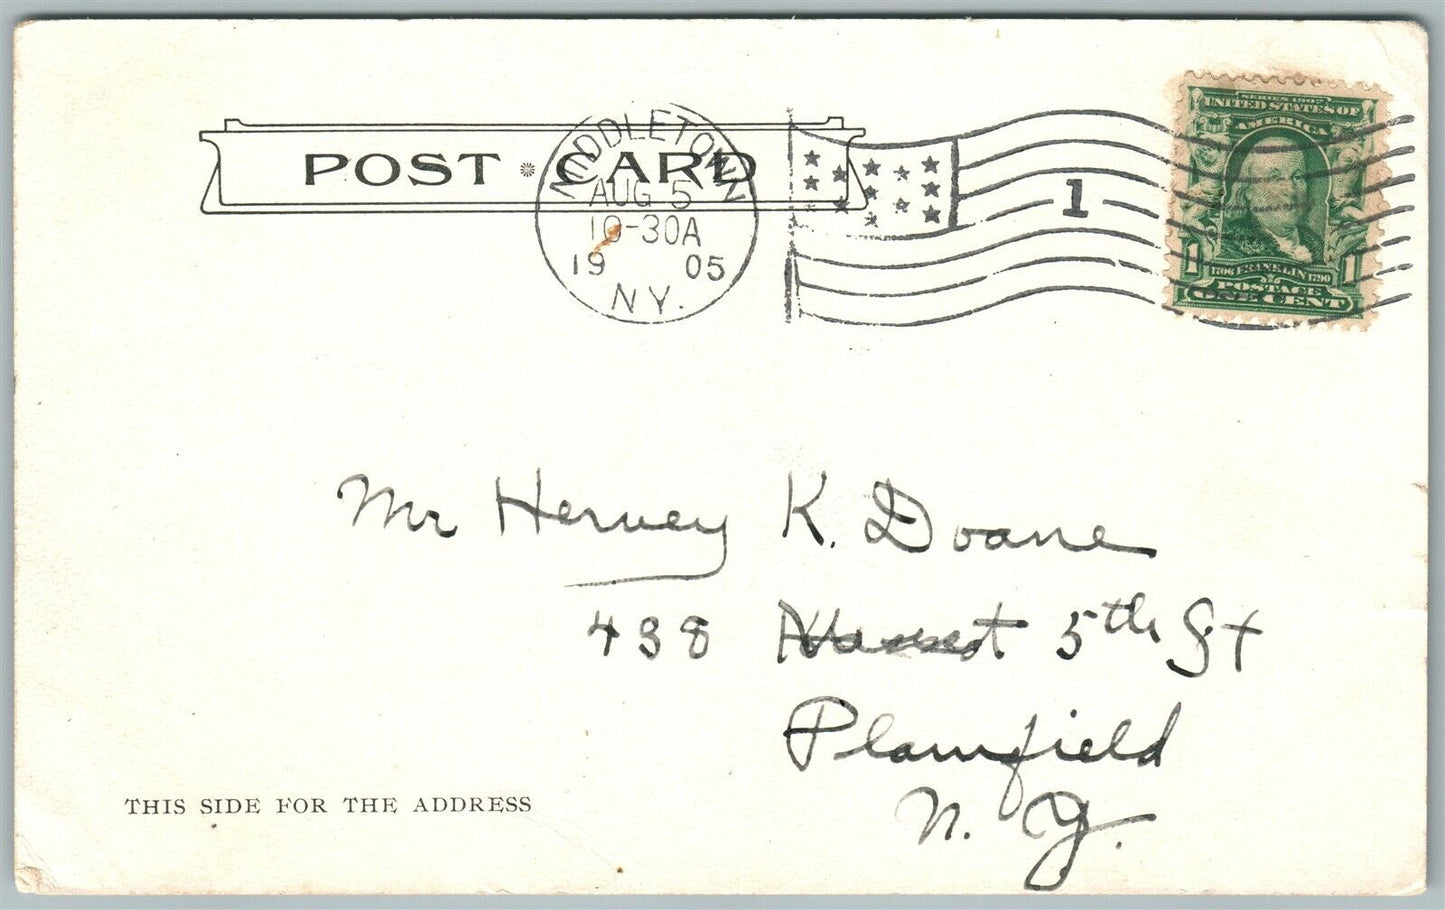 POST CARD
MIDDLETOWN
AUG 5
10-30A
19 05
N.Y.
1
SERIES 1902
UNITED STATES OF
AMERICA
1706 FRANKLIN 1790
1 1
POSTAGE
ONE CENT
Mr Hervey K. Doane
438 5th St
Plainfield
N. J.
THIS SIDE FOR THE ADDRESS